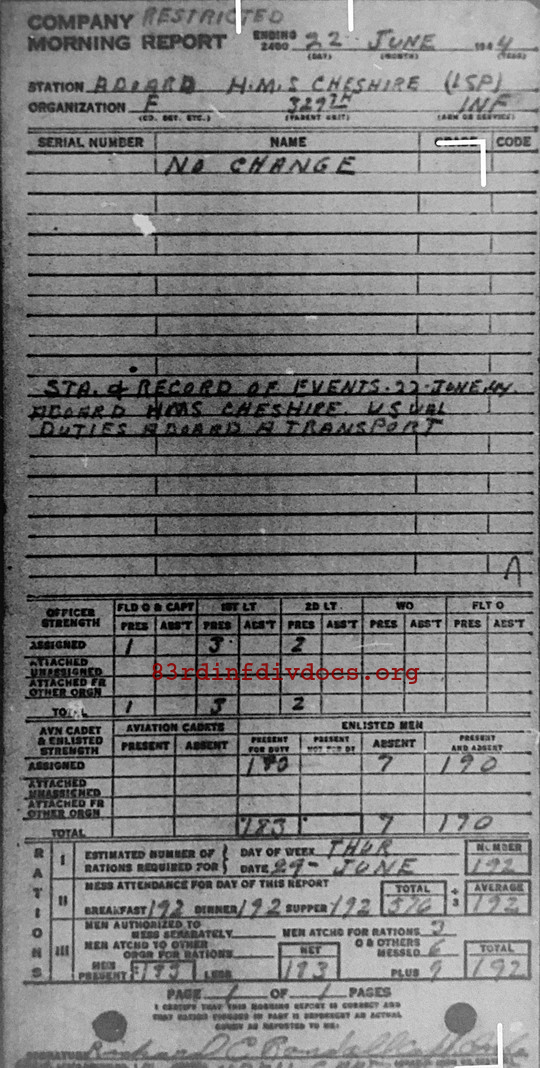 COMPANY RESTRICTED
MORNING REPORT ENDING 2400 22 JUNE 1944
(DAY) (MONTH) (YEAR)
STATION ABOARD H.M.S CHESHIRE (LSP)
ORGANIZATION F 329TH INF
(CO. DET. ETC.) (PARENT UNIT) (ARM OR SERVICE)
SERIAL NUMBER NAME GRADE CODE
NO CHANGE
STA. & RECORD OF EVENTS. 22 JUNE 44
ABOARD HMS CHESHIRE. USUAL
DUTIES ABOARD A TRANSPORT
OFFICER STRENGTH FLD O & CAPT 1ST LT 2D LT WO FLT O
PRES ABS'T PRES ABS'T PRES ABS'T PRES ABS'T PRES ABS'T
ASSIGNED 1 3 2
ATTACHED UNASSIGNED
ATTACHED FR OTHER ORGN
83rdinfdivdocs.org
TOTAL 1 3 2
AVN CADET & ENLISTED STRENGTH AVIATION CADETS ENLISTED MEN
PRESENT ABSENT PRESENT FOR DUTY PRESENT NOT FOR DY ABSENT PRESENT AND ABSENT
ASSIGNED 7 190
ATTACHED UNASSIGNED
ATTACHED FR OTHER ORGN
TOTAL 183 7 190
RATIONS
I ESTIMATED NUMBER OF RATIONS REQUIRED FOR DAY OF WEEK THUR NUMBER
DATE 29 - JUNE 192
II MESS ATTENDANCE FOR DAY OF THIS REPORT TOTAL ÷ 3 AVERAGE
BREAKFAST 192 DINNER 192 SUPPER 192 576 192
III MEN AUTHORIZED TO MESS SEPARATELY MEN ATCHD FOR RATIONS 3
MEN ATCHD TO OTHER ORGN FOR RATIONS NET O & OTHERS MESSED 6 TOTAL
MEN PRESENT 183 LESS 183 PLUS 9 192
PAGE 1 OF 1 PAGES
I CERTIFY THAT THIS MORNING REPORT IS CORRECT AND
THAT RATION FIGURES IN PART III REPRESENT AN ACTUAL
COUNT AS REPORTED TO ME:
SIGNATURE Richard C